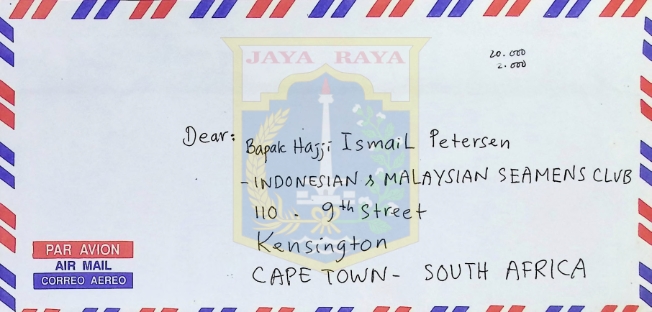 JAYA RAYA
20.000
2.000
Dear: Bapak Hajji Ismail Petersen
- INDONESIAN & MALAYSIAN SEAMENS CLUB
110 - 9th Street
Kensington
CAPE TOWN - SOUTH AFRICA
PAR AVION
AIR MAIL
CORREO AEREO